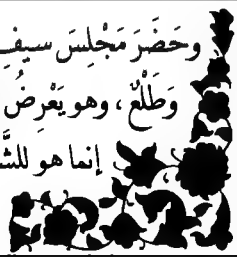 وحَضَرَ مَجْلِسَ سيفِ
وَطَلْعٌ ، وهو يَعْرِضُ
إنما هو للشَّ